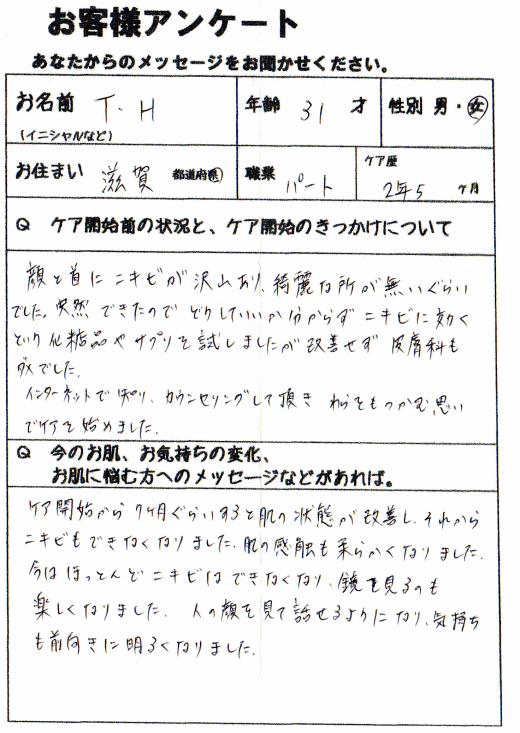 お客様アンケート
あなたからのメッセージをお聞かせください。
お名前 T.H 年齢 31 才 性別 男・女
(イニシャルなど)
お住まい 滋賀 都道府県 職業 パート ケア歴 2年5ヶ月
Q ケア開始前の状況と、ケア開始のきっかけについて
顔と首にニキビが沢山あり、綺麗な所が無いぐらい
でした。突然できたのでどうしていいか分からずニキビに効く
という化粧品やサプリを試しましたが改善せず皮膚科も
ダメでした。
インターネットで知り、カウンセリングして頂きわらをもつかむ思い
でケアを始めました。
Q 今のお肌、お気持ちの変化、
お肌に悩む方へのメッセージなどがあれば。
ケア開始から7ヶ月ぐらいすると肌の状態が改善し、それから
ニキビもできなくなりました。肌の感触も柔らかくなりました。
今はほっとんどニキビはできなくなり、鏡を見るのも
楽しくなりました。人の顔を見て話せるようになり、気持ち
も前向きに明るくなりました。